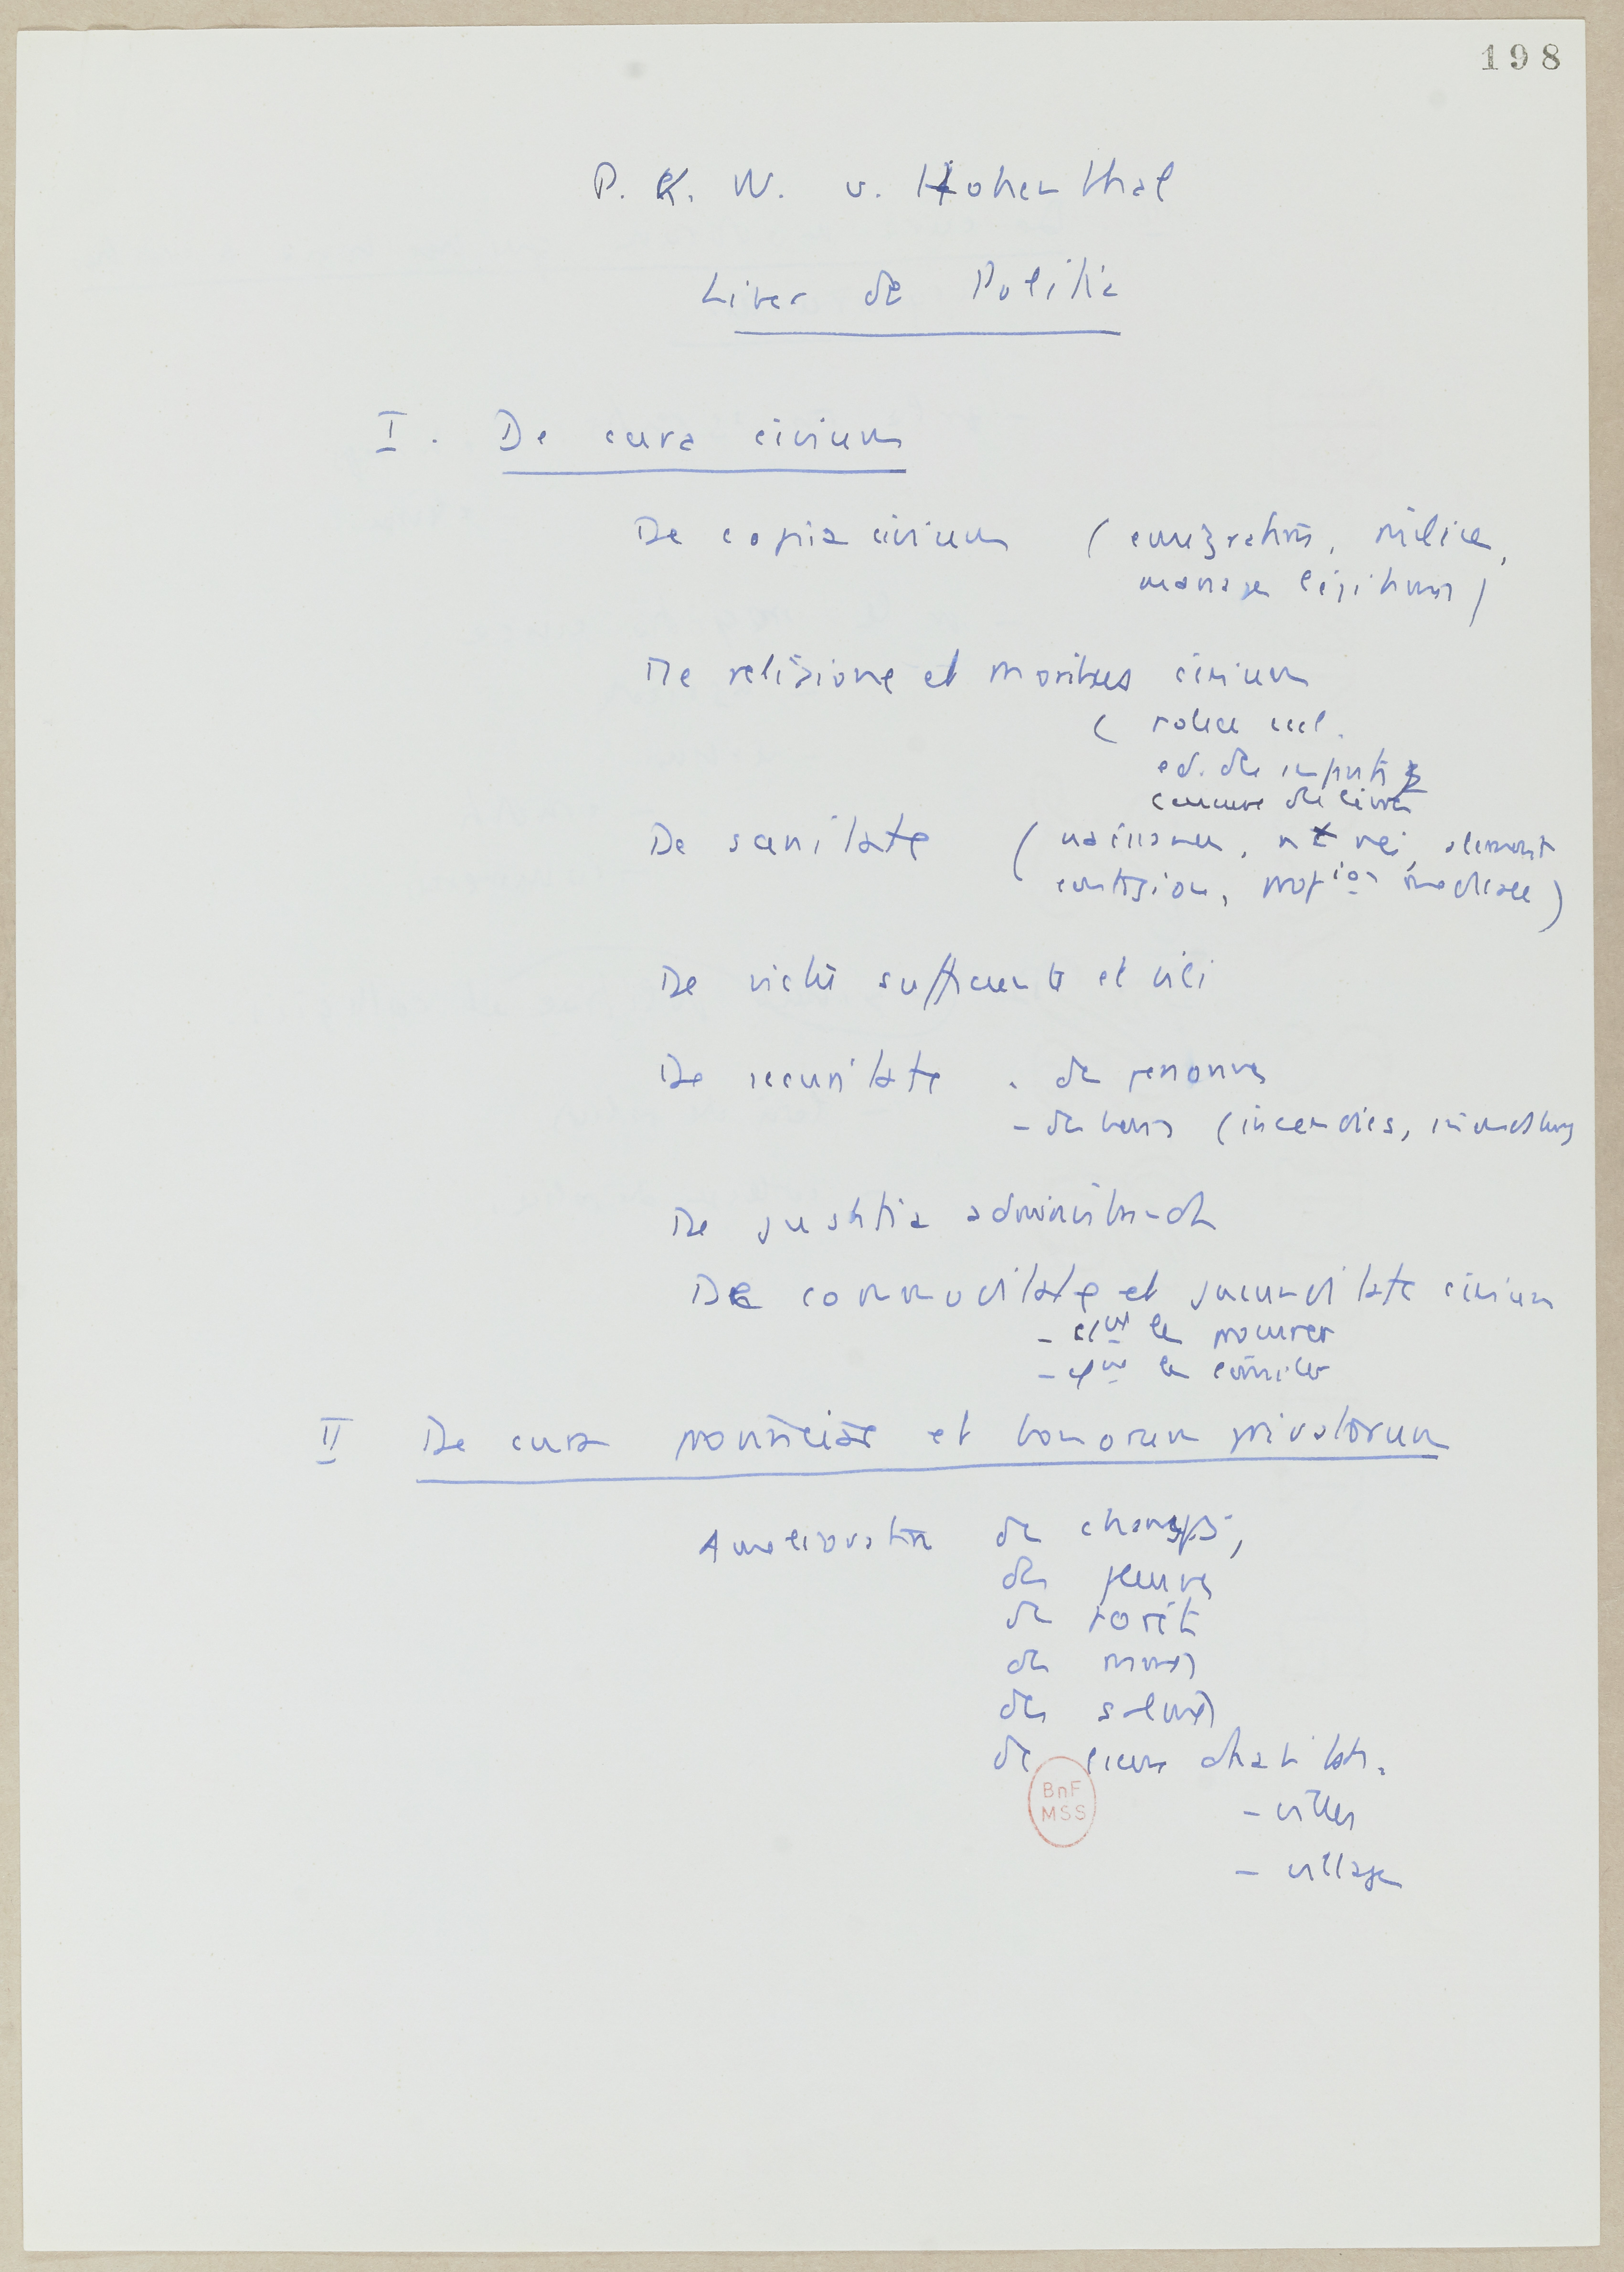 198
P. K. W. v. Hohenthal
Liber de Politia
I. De cura civium
De copia civium (emigration, milice,
mariage légitimes)
De religione et moribus civium
( police eccl.
ed. des enfants
censure des livres
De sanitate ( naissance, aliments
contagion, prof ion médicale)
De victu sufficiente et vili
De securitate - des personnes
- des biens (incendies, inondations
De justitia administranda
De commoditate et jucunditate civium
- ceux les procurer
- les
II De cura provinciae et bonorum privatorum
Amélioration des champs,
des fleuves
des forêts
des mines
des salines
des lieux d'habitat.
- villes
- villages
BnF
MSS